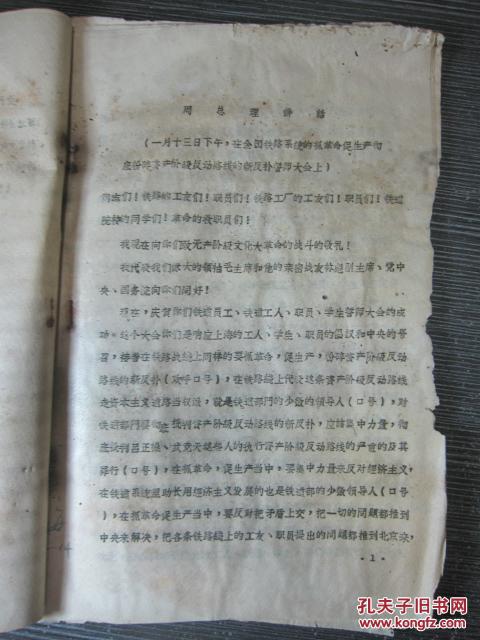 周总理讲话
(一月十三日下午,在全国铁路系统的抓革命促生产彻
底粉碎资产阶级反动路线的新反扑誓师大会上)
同志们!铁路的工友们!职员们!铁路工厂的工友们!职员们!铁道
院校的同学们!革命的教职员们!
我现在向你们致无产阶级文化大革命的战斗的敬礼!
我代表我们伟大的领袖毛主席和他的亲密战友林彪副主席、党中
央、国务院向你们问好!
现在,庆贺你们铁道员工、铁道工人、职员、学生誓师大会的成
功。这个大会你们是响应上海的工人、学生、职员的倡议和中央的号
召,接着在铁路战线上同样的要抓革命,促生产,粉碎资产阶级反动
路线的新反扑(欢呼口号),就是在铁路线上代表这条资产阶级反动路线
走资本主义道路当权派,就是铁道部门的少数的领导人(口号),对
铁道部门要彻底批判资产阶级反动路线的新反扑,应该集中力量,彻
底批判吕正操、武竞天这些人的执行资产阶级反动路线的严重的及其
罪行(口号),在抓革命,促生产当中,要集中力量来反对经济主义,
在铁道系这里助长用经济主义发展的也是铁道部的少数领导人(口号
),在抓革命促生产当中,要反对把矛盾上交,把一切的问题都推到
中央来解决,把各条铁路线上的工友、职员提出的问题都推到北京来,
·1·
14
孔夫子旧书网
KONGFZ.COM